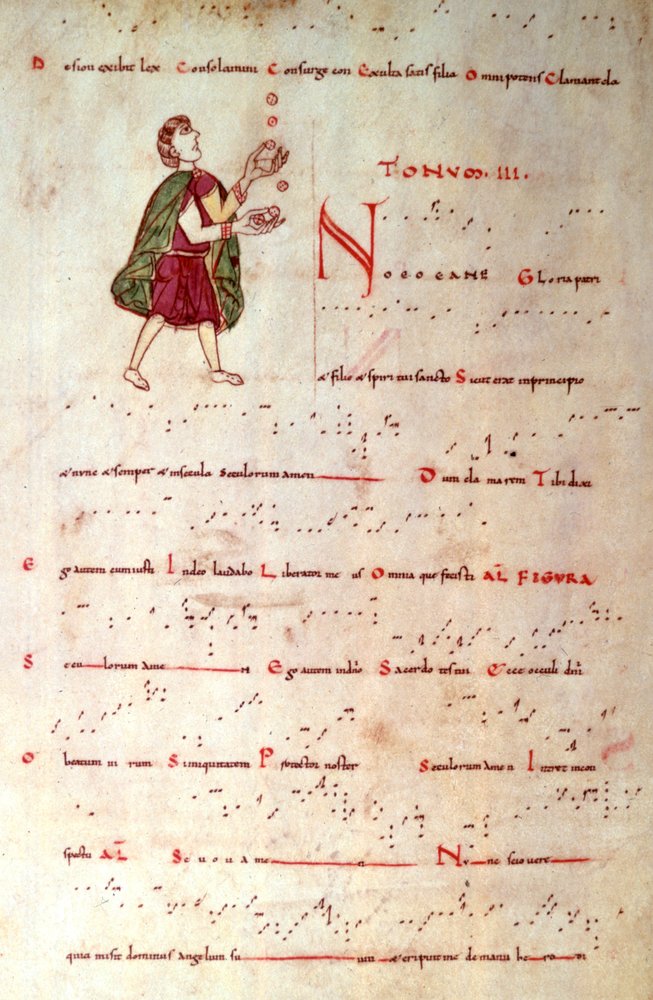 De sion exibit lex Consolamini Consurge con Exulta satis filia Omnipotens Clamant ela
TONUM. III.
NOEOEANE Gloria patri
& filio & spiritui sancto Sicut erat in principio
& nunc & semper & in secula seculorum amen Dum clamarem Tibi dixi
Ego autem cum iusti In deo laudabo Liberator me us Omnia que fecisti AL FIGURA
Seculorum Ame N Ego autem in dno Sacerdo tes tui Ecce occuli dni
O beatum ui rum Si iniquitatem Protector noster Seculorum amen Intret in con
spectu AL Seuouame n Nunc scio vere
quia misit dominus Angelum su um & eripuit me de manu he ro di